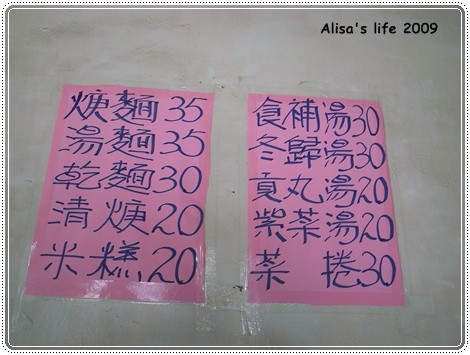 Alisa's life 2009
焿麵35
湯麵35
乾麵30
清焿20
米糕20
食補湯30
冬歸湯30
貢丸湯20
紫菜湯20
菜捲30